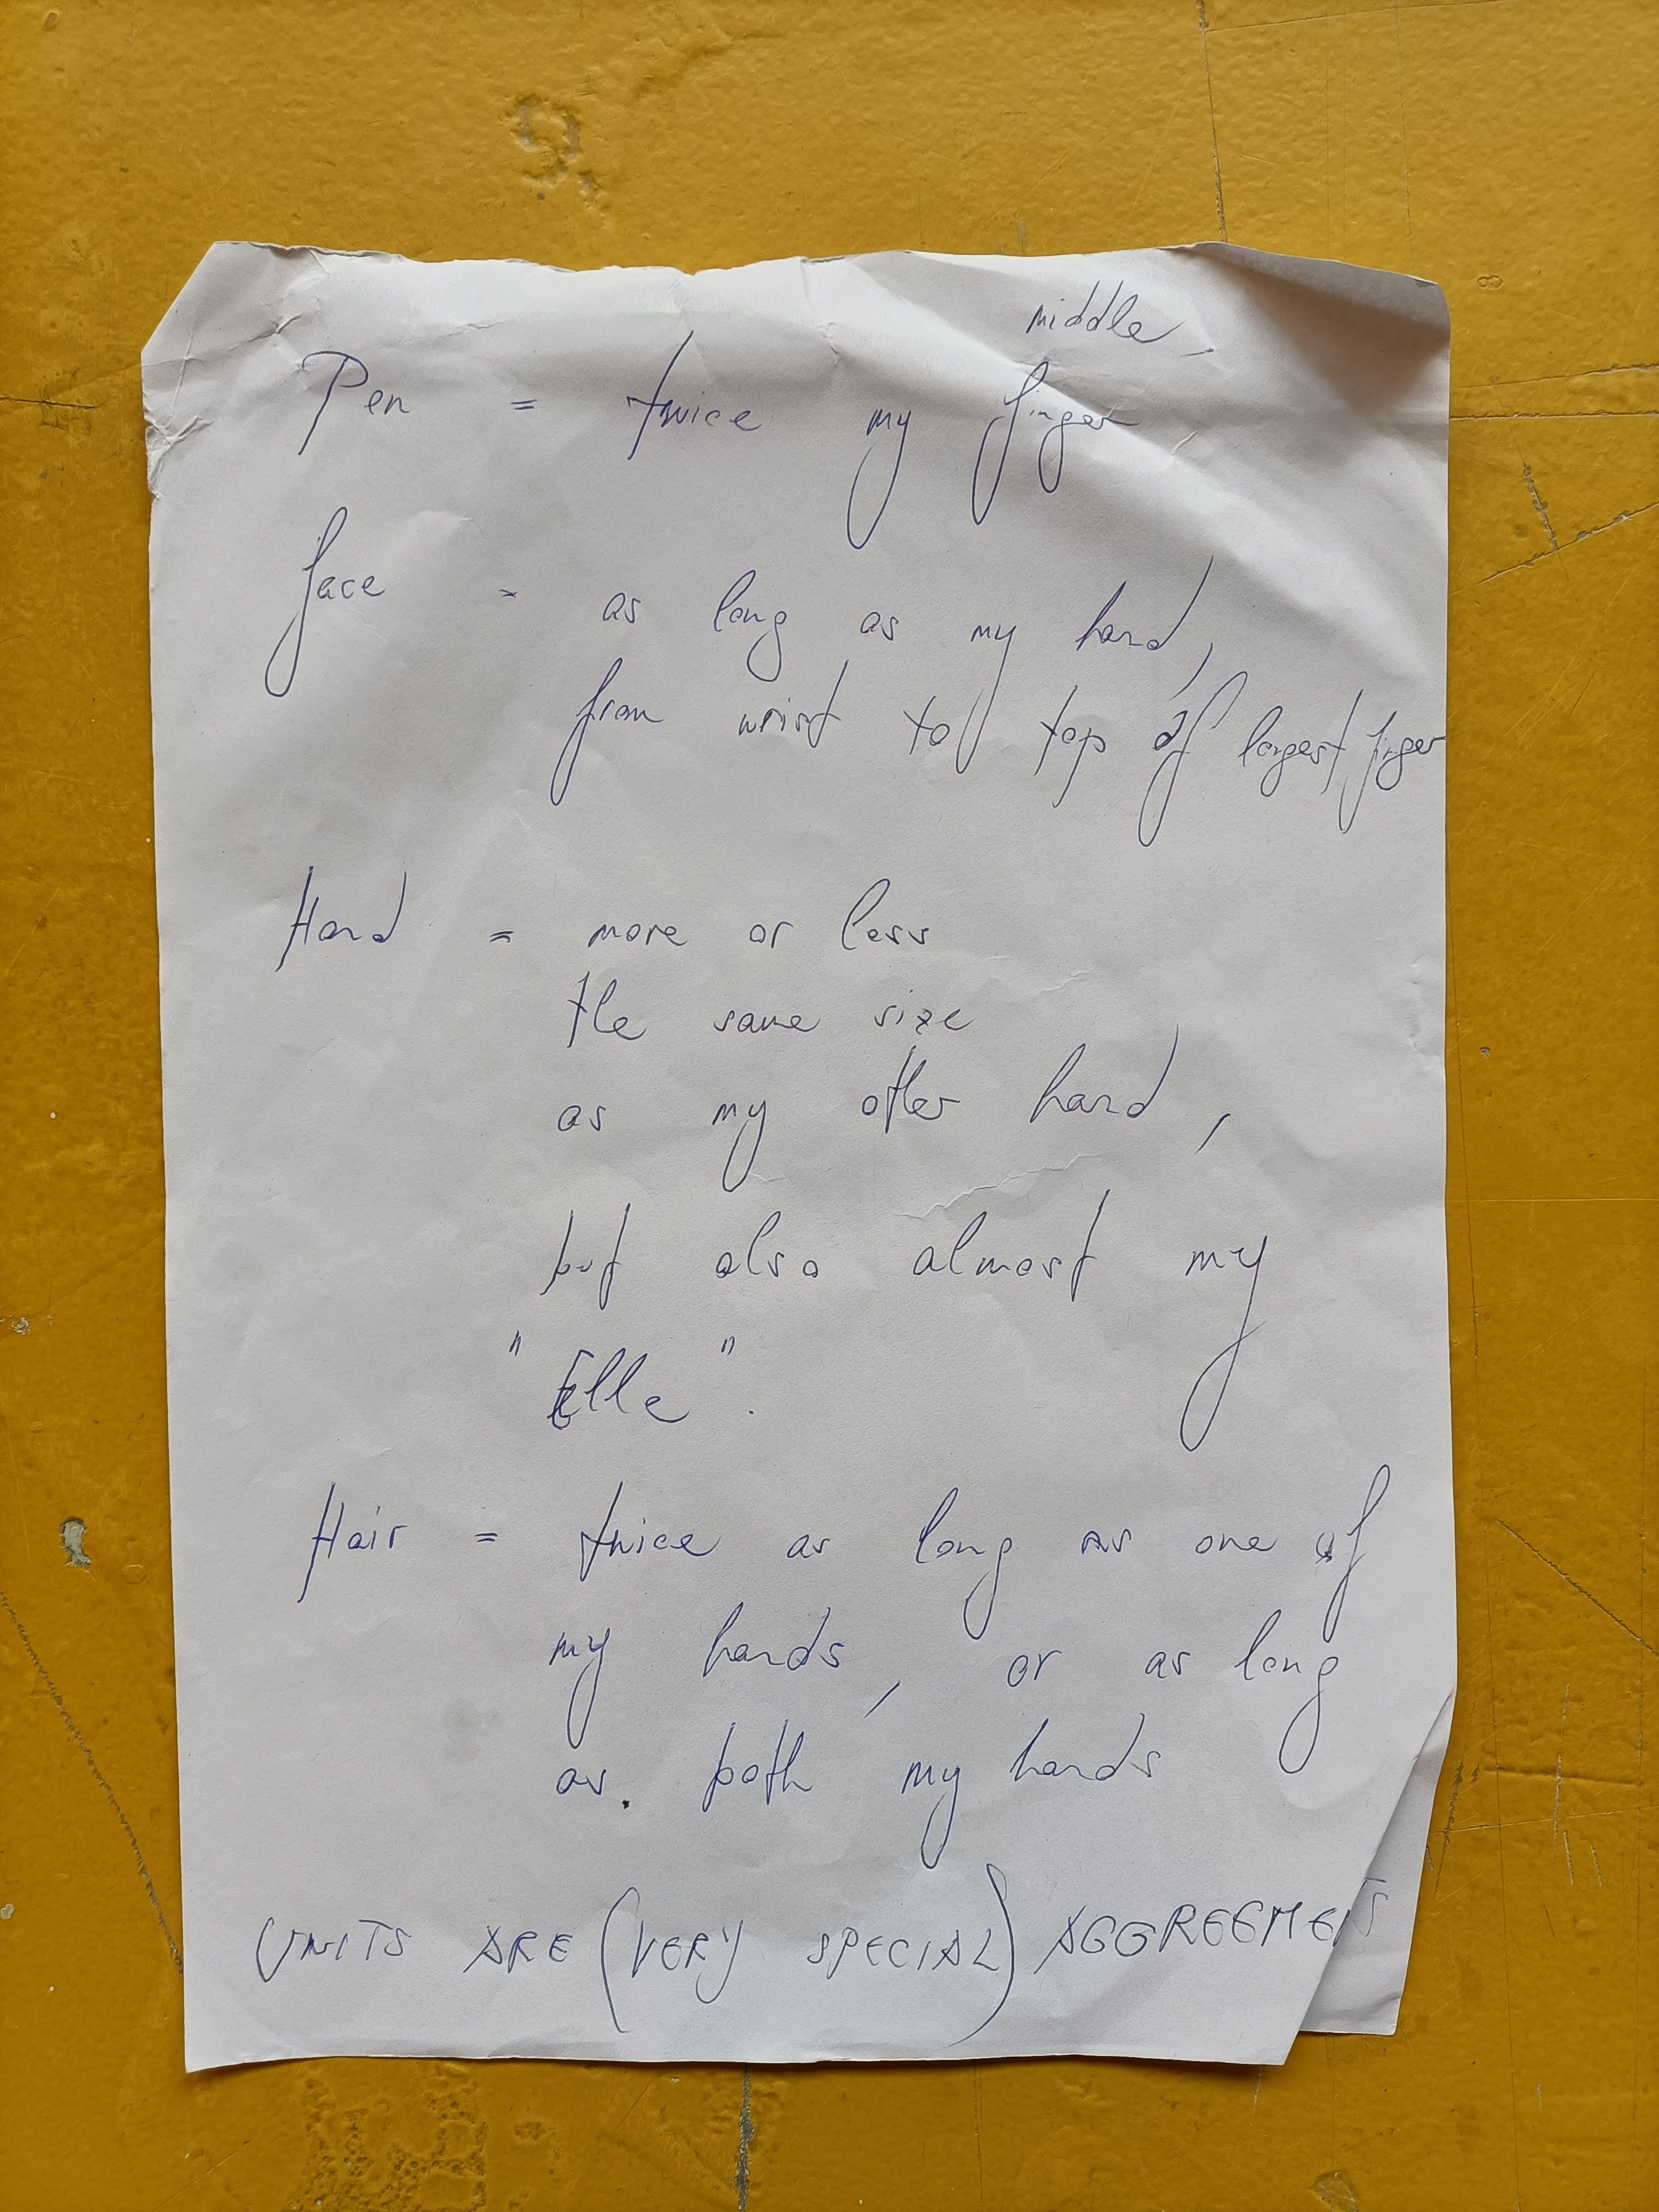 middle
Pen = twice my finger
face = as long as my hand,
from wrist to top of longest finger
Hand = more or less
the same size
as my other hand,
but also almost my
"Elle".
Hair = twice as long as one of
my hands, or as long
as both my hands
UNITS ARE (VERY SPECIAL) AGGREEMENTS